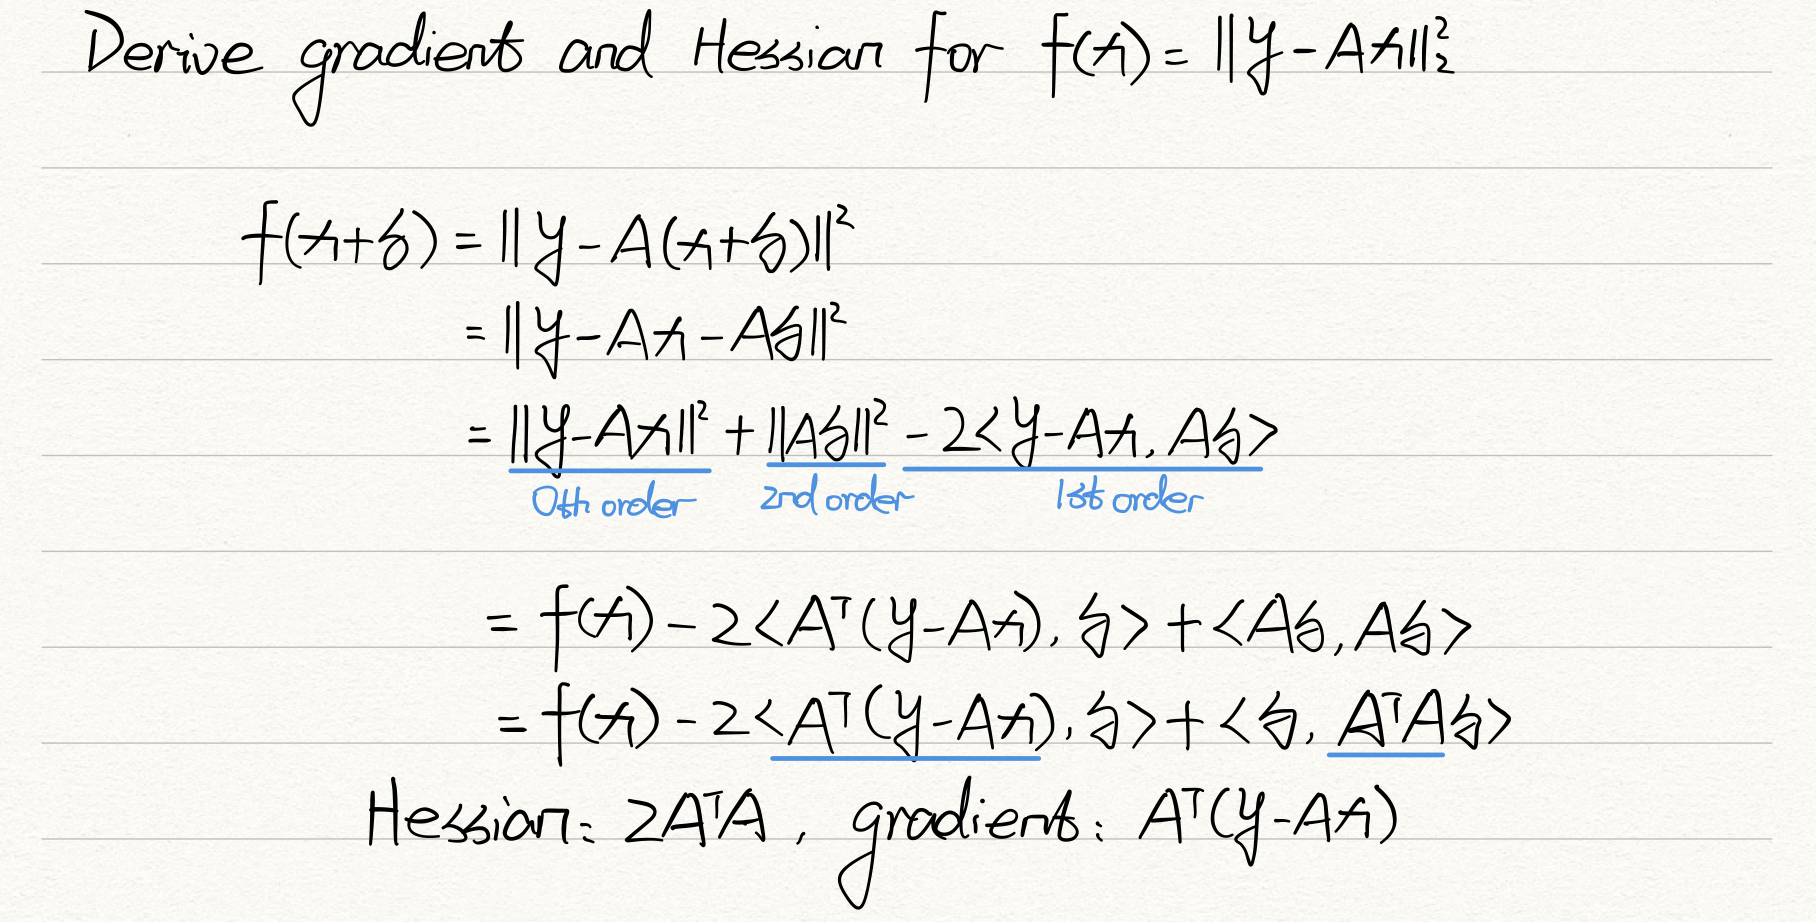 Derive gradient and Hessian for f(x) = ||y - Ax||₂²
f(x+δ) = ||y - A(x+δ)||²
= ||y - Ax - Aδ||²
= ||y - Ax||² + ||Aδ||² - 2<y - Ax, Aδ>
0th order 2nd order 1st order
= f(x) - 2<Aᵀ(y - Ax), δ> + <Aδ, Aδ>
= f(x) - 2<Aᵀ(y - Ax), δ> + <δ, AᵀAδ>
Hessian: 2AᵀA, gradient: Aᵀ(y - Ax)